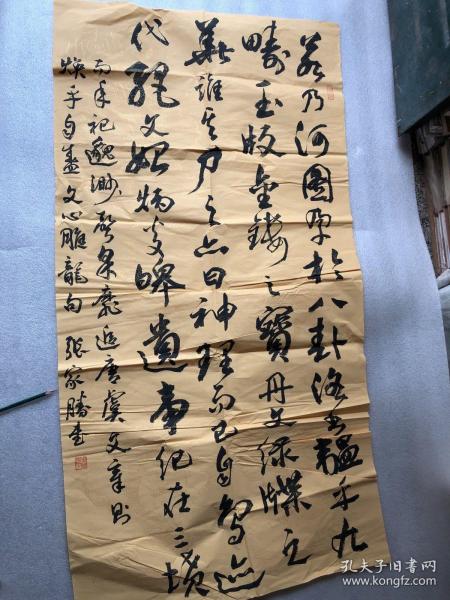 若乃河圖孕於八卦洛書韞乎九
疇玉版金鏤之寶丹文綠牒之
華誰其尸之亦曰神理而已自鳥迹
代繩文始炳炎皞遺事紀在三墳
而年祀邈渺聲采靡追唐虞文章則
煥乎盛文心雕龍句 張家勝書
孔夫子旧书网
www.kongfz.com